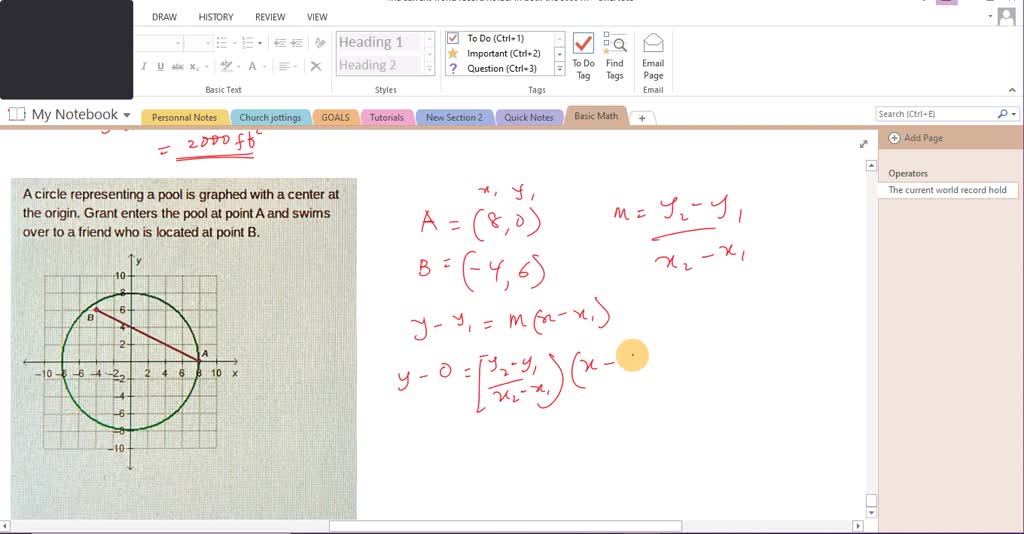 DRAW HISTORY REVIEW VIEW
Heading 1
Heading 2
To Do (Ctrl+1)
Important (Ctrl+2)
? Question (Ctrl+3)
To Do Tag
Find Tags
Email Page
I U abc x₂ A
Basic Text Styles Tags Email
My Notebook
Personnal Notes Church jottings GOALS Tutorials New Section 2 Quick Notes Basic Math +
Search (Ctrl+E)
Add Page
Operators
The current world record hold
= 2000 ft²
A circle representing a pool is graphed with a center at
the origin. Grant enters the pool at point A and swims
over to a friend who is located at point B.
y
10
8
6
B
4
2
A
-10 -8 -6 -4 -2 2 4 6 8 10 x
-2
-4
-6
-8
-10
x₁ y₁
A = (8, 0)
B = (-4, 6)
y - y₁ = m(x - x₁)
y - 0 = [y₂ - y₁ / x₂ - x₁) (x -
m = y₂ - y₁ / x₂ - x₁